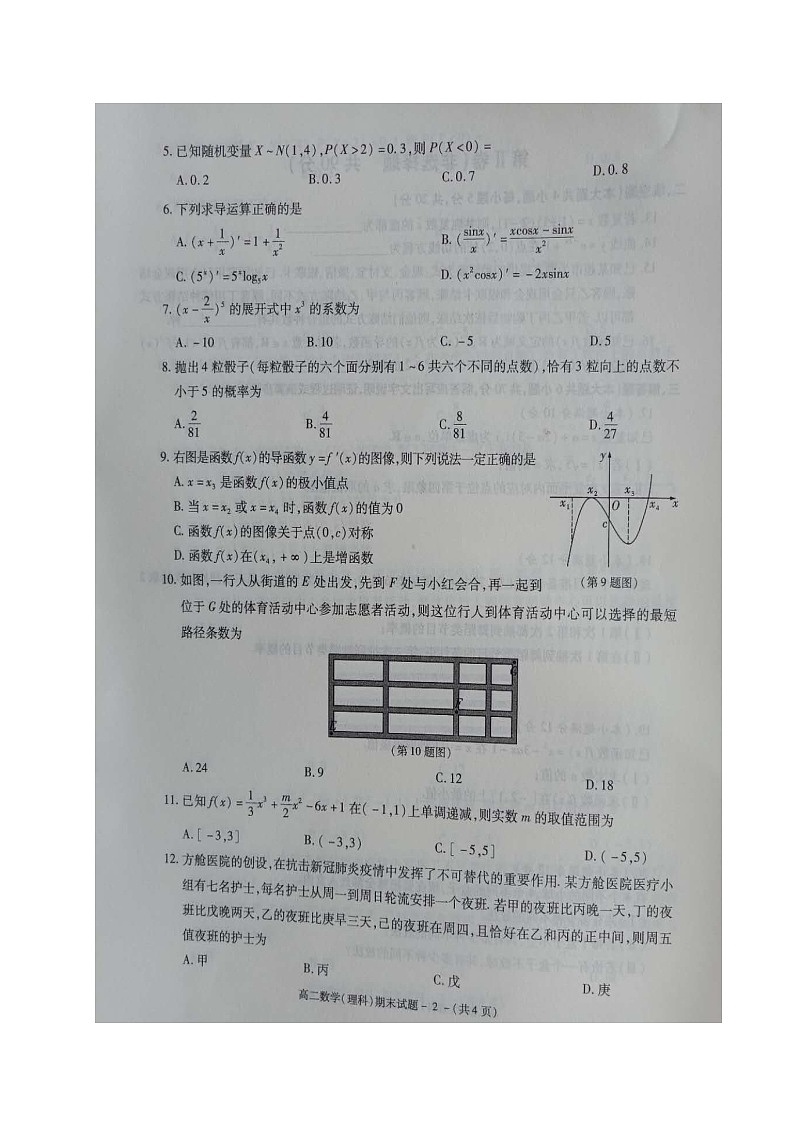 5. 已知随机变量 X ~ N(1,4), P(X>2) = 0.3, 则 P(X<0) =
A. 0.2 B. 0.3 C. 0.7 D. 0.8
6. 下列求导运算正确的是
A. (x + 1/x)′ = 1 + 1/x² B. (sinx/x)′ = (xcosx − sinx)/x²
C. (5ˣ)′ = 5ˣlog₅x D. (x²cosx)′ = −2xsinx
7. (x − 2/x)⁵ 的展开式中 x³ 的系数为
A. −10 B. 10 C. −5 D. 5
8. 抛出4粒骰子(每粒骰子的六个面分别有1~6共六个不同的点数),恰有3粒向上的点数不
小于5的概率为
A. 2/81 B. 4/81 C. 8/81 D. 4/27
9. 右图是函数f(x)的导函数y=f′(x)的图像,则下列说法一定正确的是
A. x = x₃ 是函数f(x)的极小值点
B. 当 x = x₂ 或 x = x₄ 时,函数f(x)的值为0
C. 函数f(x)的图像关于点(0,c)对称
D. 函数f(x)在(x₄, +∞)上是增函数
y
x₁ x₂ O x₃ x₄ x
c
(第9题图)
10. 如图,一行人从街道的 E 处出发,先到 F 处与小红会合,再一起到
位于 G 处的体育活动中心参加志愿者活动,则这位行人到体育活动中心可以选择的最短
路径条数为
G
F
E
(第10题图)
A. 24 B. 9 C. 12 D. 18
11. 已知 f(x) = 1/3 x³ + m/2 x² − 6x + 1 在(−1,1)上单调递减,则实数 m 的取值范围为
A. [−3,3] B. (−3,3) C. [−5,5] D. (−5,5)
12. 方舱医院的创设,在抗击新冠肺炎疫情中发挥了不可替代的重要作用. 某方舱医院医疗小
组有七名护士,每名护士从周一到周日轮流安排一个夜班. 若甲的夜班比丙晚一天,丁的夜
班比戊晚两天,乙的夜班比庚早三天,己的夜班在周四,且恰好在乙和丙的正中间,则周五
值夜班的护士为
A. 甲 B. 丙 C. 戊 D. 庚
高二数学(理科)期末试题 − 2 −(共4页)